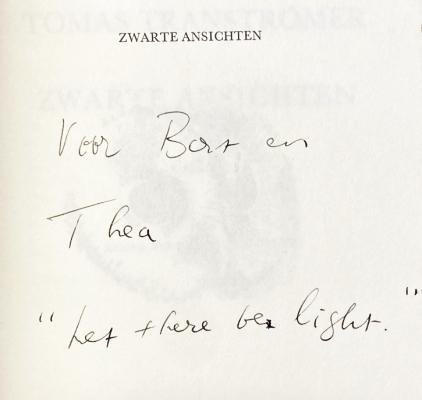 TOMAS TRANSTRÖMER
ZWARTE ANSICHTEN
ZWARTE ANSICHTEN
Voor Bart en
Thea
"Let there be light."